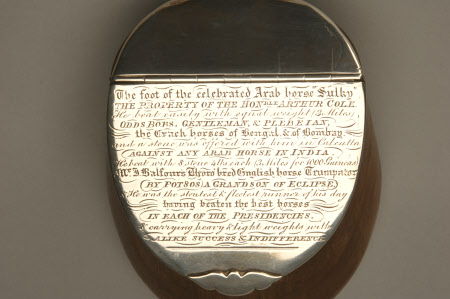 The foot of the celebrated Arab horse Sulky
THE PROPERTY OF THE HON.BLE ARTHUR COLE.
He beat easily with equal weight 1¾ Miles,
ODDS BOBS, GENTLEMAN, & PLEBEIAN,
the Crack horses of Bengal, & of Bombay,
and a stone was offered with him in Calcutta
AGAINST ANY ARAB HORSE IN INDIA.
He beat with 8 stone 4lbs each Miles for 1000 Guineas
Mr. J. Balfours Thoro bred English horse Trumpator
(BY POTSOS A GRANDSON OF ECLIPSE)
He was the stoutest & fleetest runner of his day
having beaten the best horses
IN EACH OF THE PRESIDENCIES,
& carrying heavy & light weights with
ALIKE SUCCESS & INDIFFERENCE